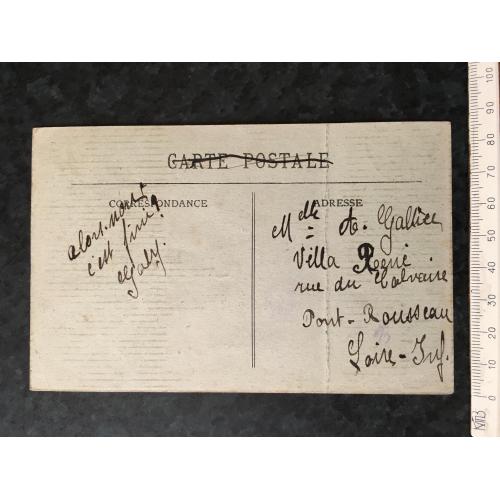 CARTE POSTALE
CORRESPONDANCE
alors
c'est fini?
ADRESSE
Melle A. Gallier
Villa René
rue du Calvaire
Pont-Rousseau
Loire-Inf.
100
90
80
70
60
50
40
30
20
10
0